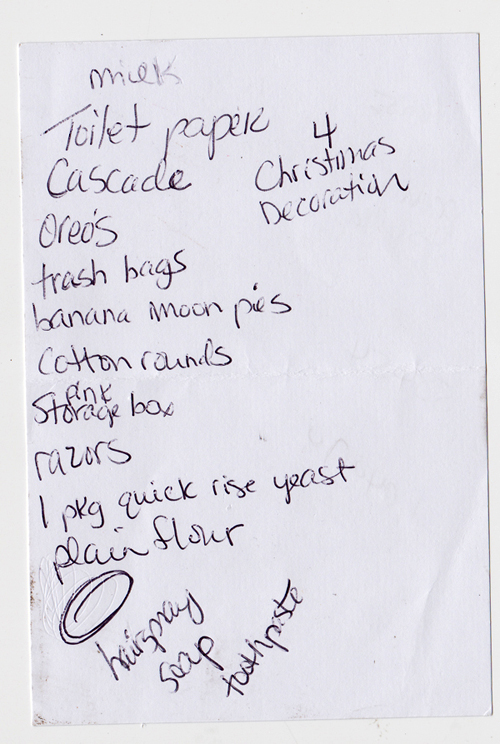 milk
Toilet paper
4
Christmas
Decoration
Cascade
Oreo's
trash bags
banana moon pies
Cotton rounds
pink
Storage box
razors
1 pkg quick rise yeast
plain flour
hairspray
soap
toothpaste